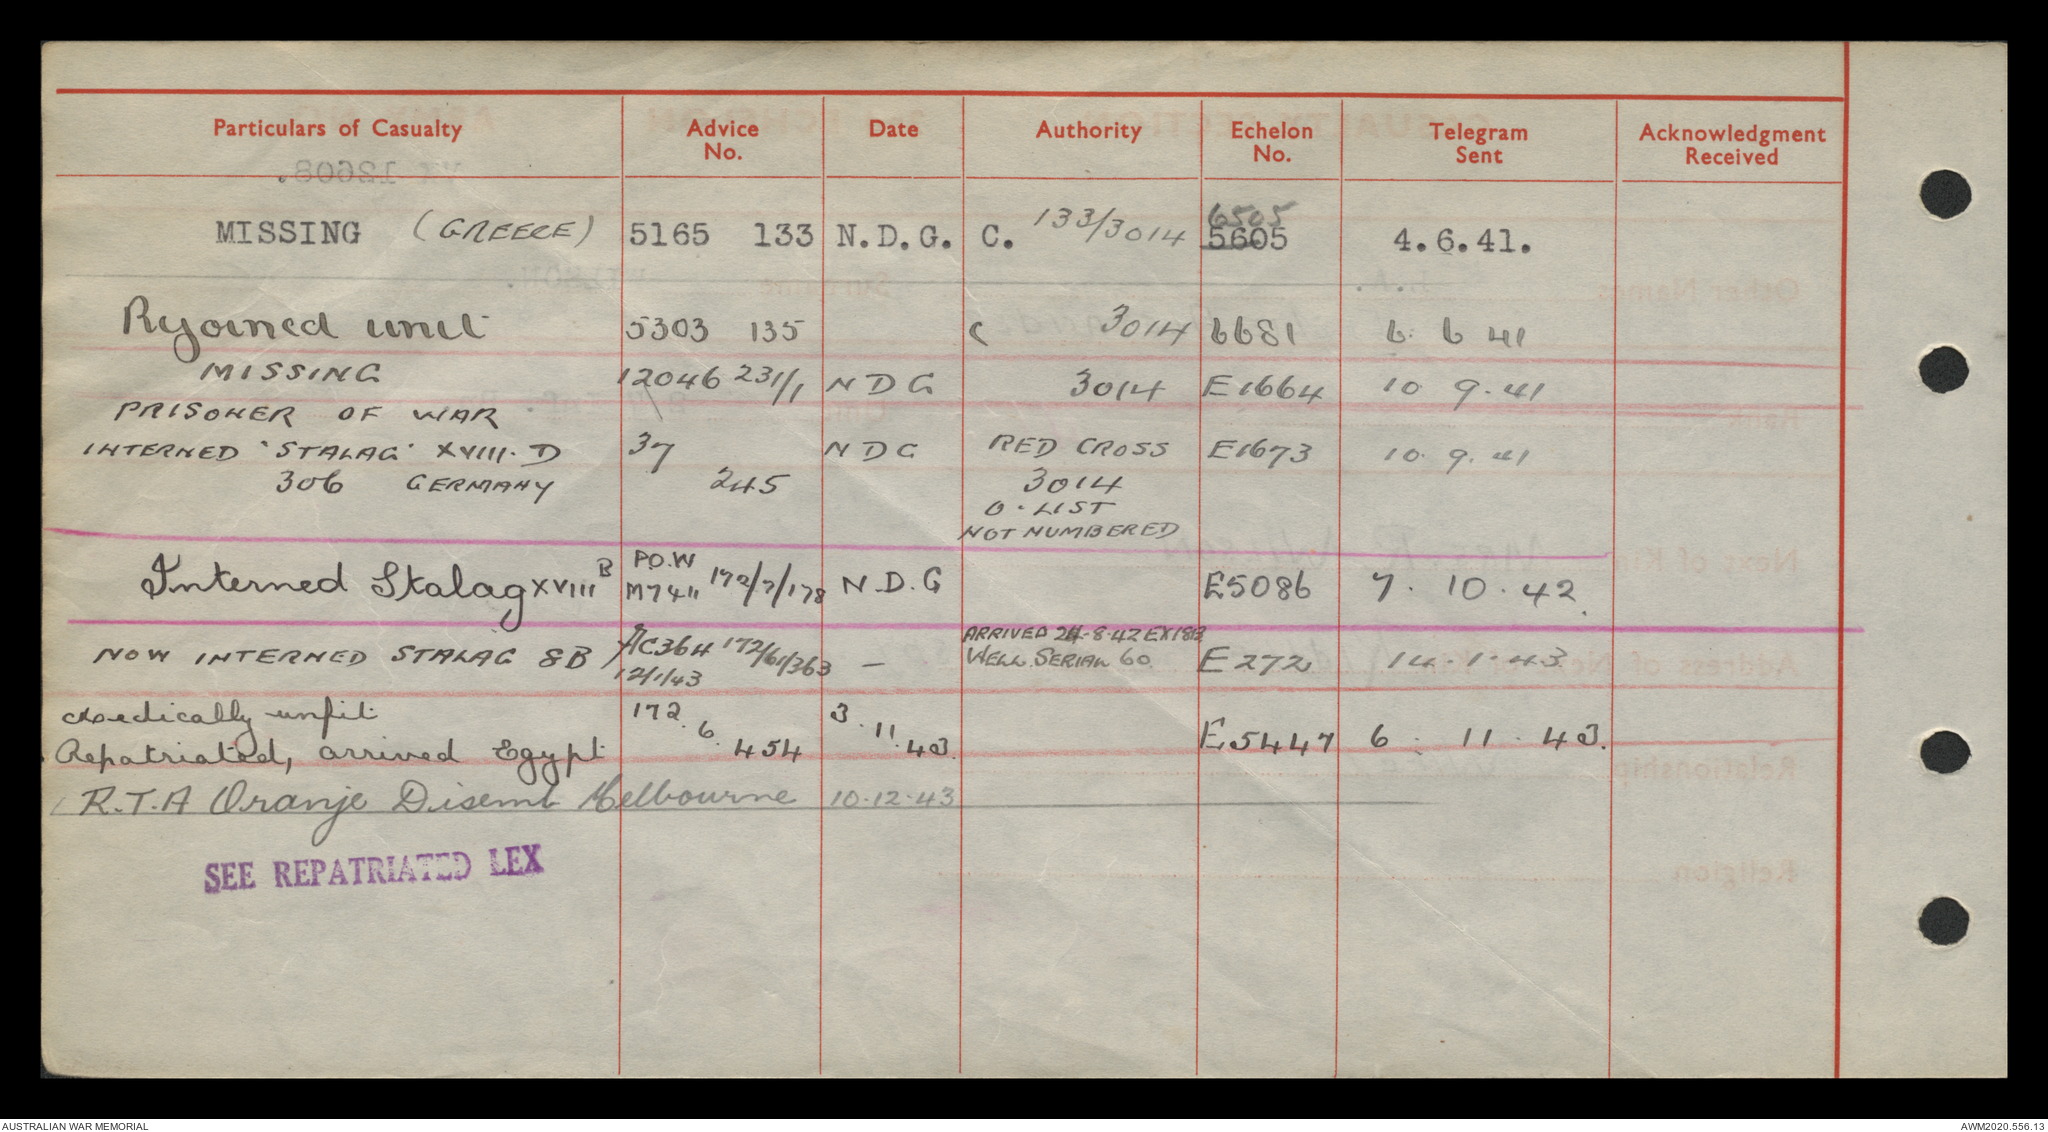 Particulars of Casualty Advice No. Date Authority Echelon No. Telegram Sent Acknowledgment Received
6505
MISSING (GREECE) 5165 133 N.D.G. C. 133/3014 5605 4.6.41.
Rejoined unit 5303 135 C 3014 6681 6. 6 41
MISSING 12046 231/1 N D G 3014 E1664 10 9.41
PRISONER OF WAR
INTERNED 'STALAG' XVIII.D 37 N D G RED CROSS E1673 10.9.41
306 GERMANY 245 3014
O.LIST
NOT NUMBERED
Interned Stalag XVIII B P.O.W M7411 172/7/178 N.D.G E5086 7.10.42.
ARRIVED 24-8-42 EX 18B
NOW INTERNED STALAG 8B AC364 172/61/363 – WELL SERIAL 60. E272 14.1.43
12/1/43
Medically unfit 172. 6. 454 3.11.43.
Repatriated, arrived Egypt E5447 6.11.43.
R.T.A Oranje Disemb Melbourne 10.12.43
SEE REPATRIATED LEX
AUSTRALIAN WAR MEMORIAL AWM2020.556.13